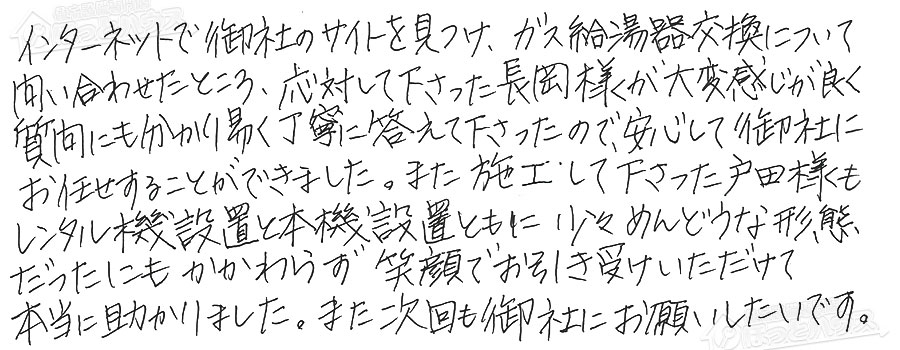 インターネットで御社のサイトを見つけ、ガス給湯器交換について
問い合わせたところ、応対して下さった長岡様が大変感じが良く
質問にも分かり易く丁寧に答えて下さったので、安心して御社に
お任せすることができました。また施工して下さった戸田様も
レンタル機設置と本機設置ともに少々めんどうな形態
だったにもかかわらず笑顔でお引き受けいただけて
本当に助かりました。また次回も御社にお願いしたいです。